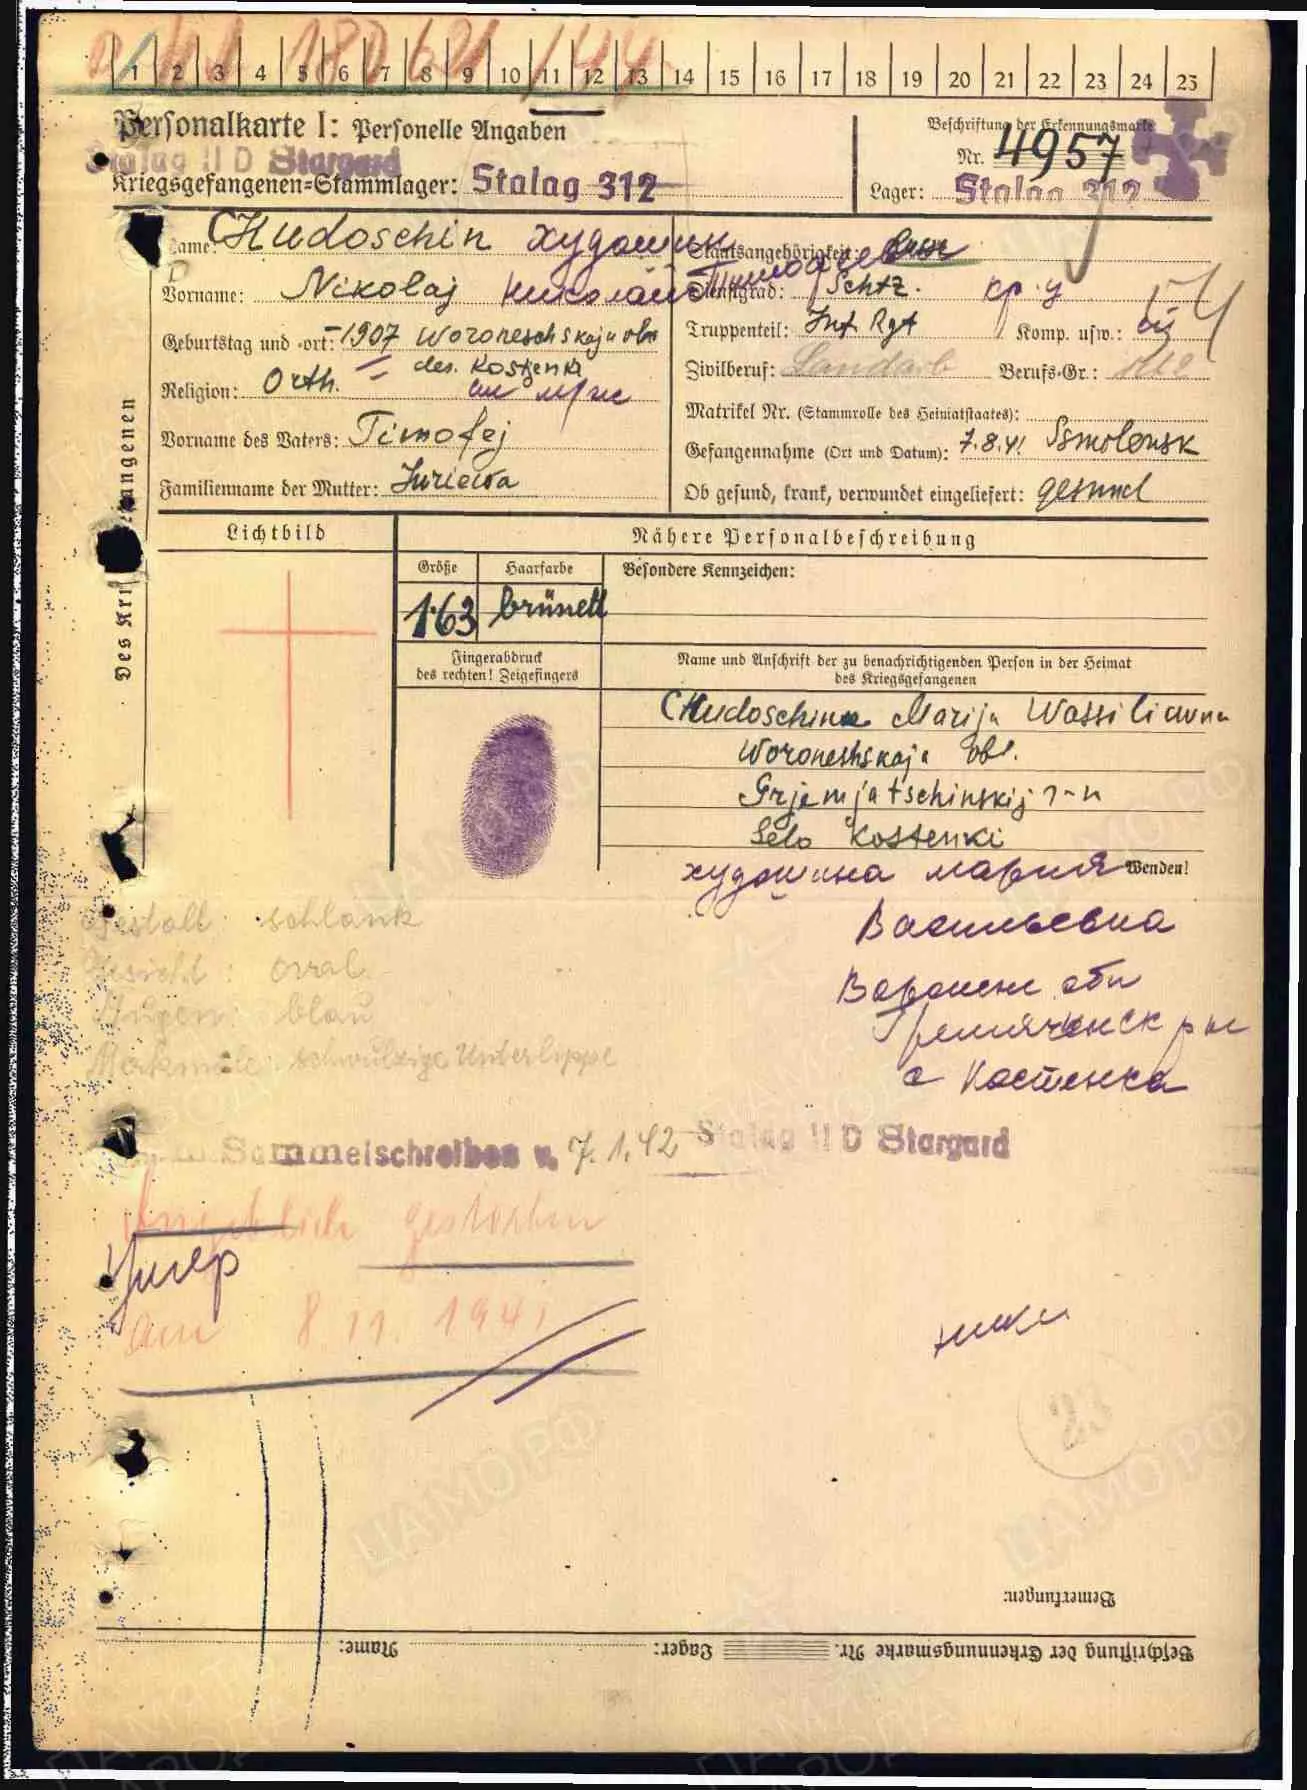 1 2 3 4 5 6 7 8 9 10 11 12 13 14 15 16 17 18 19 20 21 22 23 24 25
Personalkarte I: Personelle Angaben
Beschriftung der Erkennungsmarke
Stalag II D Stargard
Nr. 4957
Kriegsgefangenen-Stammlager: Stalag 312
Lager: Stalag 312
Name: CHudoschin худошин
Staatsangehörigkeit: Russe
Vorname: Nikolaj николай Тимофеев
Dienstgrad: Schtz. кр-ц
Geburtstag und -ort: -1907 Woroneschskaja obl
des. Kostenki
Truppenteil: Inf Rgt Komp. usw.:
Religion: Orth.
Zivilberuf: Landarb Berufs-Gr.:
Matrikel Nr. (Stammrolle des Heimatstaates):
Vorname des Vaters: Timofej
Gefangennahme (Ort und Datum): 7.8.41. Smolensk
Familienname der Mutter: Juriewa
Ob gesund, krank, verwundet eingeliefert: gesund
Des Kriegsgefangenen
Lichtbild
Nähere Personalbeschreibung
Größe Haarfarbe Besondere Kennzeichen:
1.63 brünett
Fingerabdruck
des rechten! Zeigefingers
Name und Anschrift der zu benachrichtigenden Person in der Heimat
des Kriegsgefangenen
CHudoschina Marija Wassiliawna
Woroneshskaja obl.
Grjemjatschinskij r-n
Selo Kostenki
худошина мария Wenden!
Васильевна
Воронеж обл
Гремяченск р не
с Костенка
Gestalt: schlank
Gesicht: oval
Augen: blau
Merkmale: schwulzige Unterlippe
Sammelschreiben v. 7.1.42 Stalag II D Stargard
Angeblich gestorben
Умер
am 8 11. 1941
23
Bemerkungen:
Beschriftung der Erkennungsmarke Nr. Lager: Name: